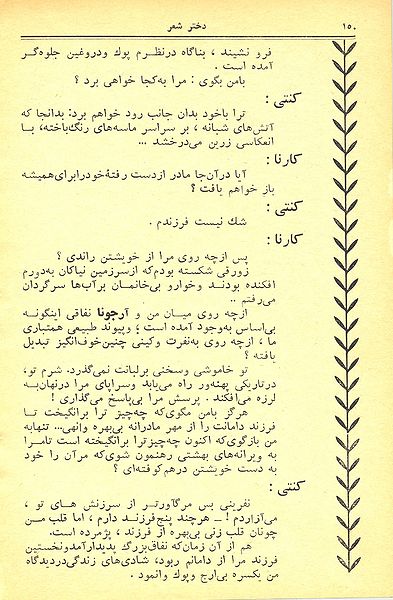 ۱۵۰
دختر شعر
فرو نشیند ، بناگاه در نظرم پوك ودروغین جلوه‌گر
آمده است .
بامن بگوی : مرا به‌کجا خواهی برد ؟
کنتی :
ترا باخود بدان جانب رود خواهم برد: بدانجا که
آتش‌های شبانه ، بر سراسر ماسه‌های رنگ‌باخته، با
انعکاسی زرین می‌درخشد ...
کارنا :
آیا درآن‌جا مادر ازدست رفتهٔ خودرا برای‌همیشه
باز خواهم یافت ؟
کنتی :
شك نیست فرزندم .
کارنا :
پس ازچه روی مرا از خویشتن راندی ؟
زورقی شکسته بودم‌که ازسرزمین نیاکان به‌دورم
افکنده بودند وخوارو بی‌خانمان برآب‌ها سرگردان
می‌رفتم ..
ازچه روی میان من و آرجونا نفاقی اینگونه
بی‌اساس به‌وجود آمده است ؛ وپیوند طبیعی همتباری
ما ، ازچه روی به‌نفرت وکینی چنین‌خوف‌انگیز تبدیل
یافته ؟
تو خاموشی وسخنی برلبانت نمی‌گذرد. شرم تو،
درتاریکی پهنه‌ور راه می‌یابد وسراپای مرا درنهان‌به
لرزه می‌افکند . پرسش مرا بی‌پاسخ می‌گذاری !
هرگز بامن مگوی‌که چه‌چیز ترا برانگیخت تا
فرزند دامانت را از مهر مادرانه بی‌بهره وانهی... تنهابه
من بازگوی‌که اکنون چه‌چیزترا برانگیخته است تامرا
به ویرانه‌های بهشتی رهنمون شوی‌که مرآن را خود
به دست خویشتن درهم‌کوفته‌ای ؟
کنتی :
نفرینی بس مرگ‌آورتر از سرزنش های تو ،
می‌آزاردم ! ــ هرچند پنج‌فرزند دارم ، اما قلب من
چونان قلب زنی بی‌بهره از فرزند ، پژمرده است.
هم از آن زمان‌که نفاق‌بزرگ پدیدارآمدونخستین
فرزند مرا از دامانم ربود، شادی‌های زندگی‌دردیدگاه
من یکسره بی‌ارج وپوك وانمود .